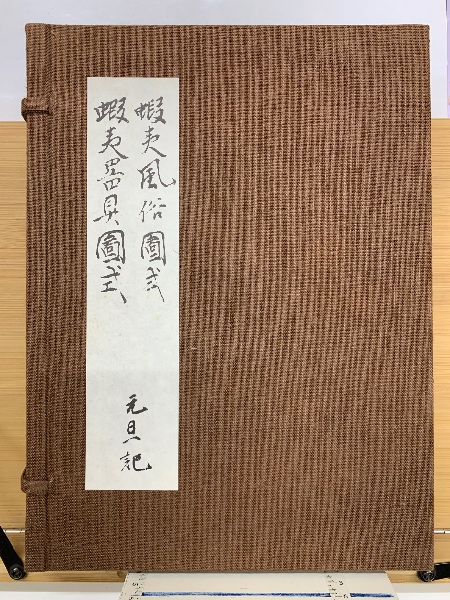 蝦夷風俗圖式
蝦夷器具圖式
元旦記